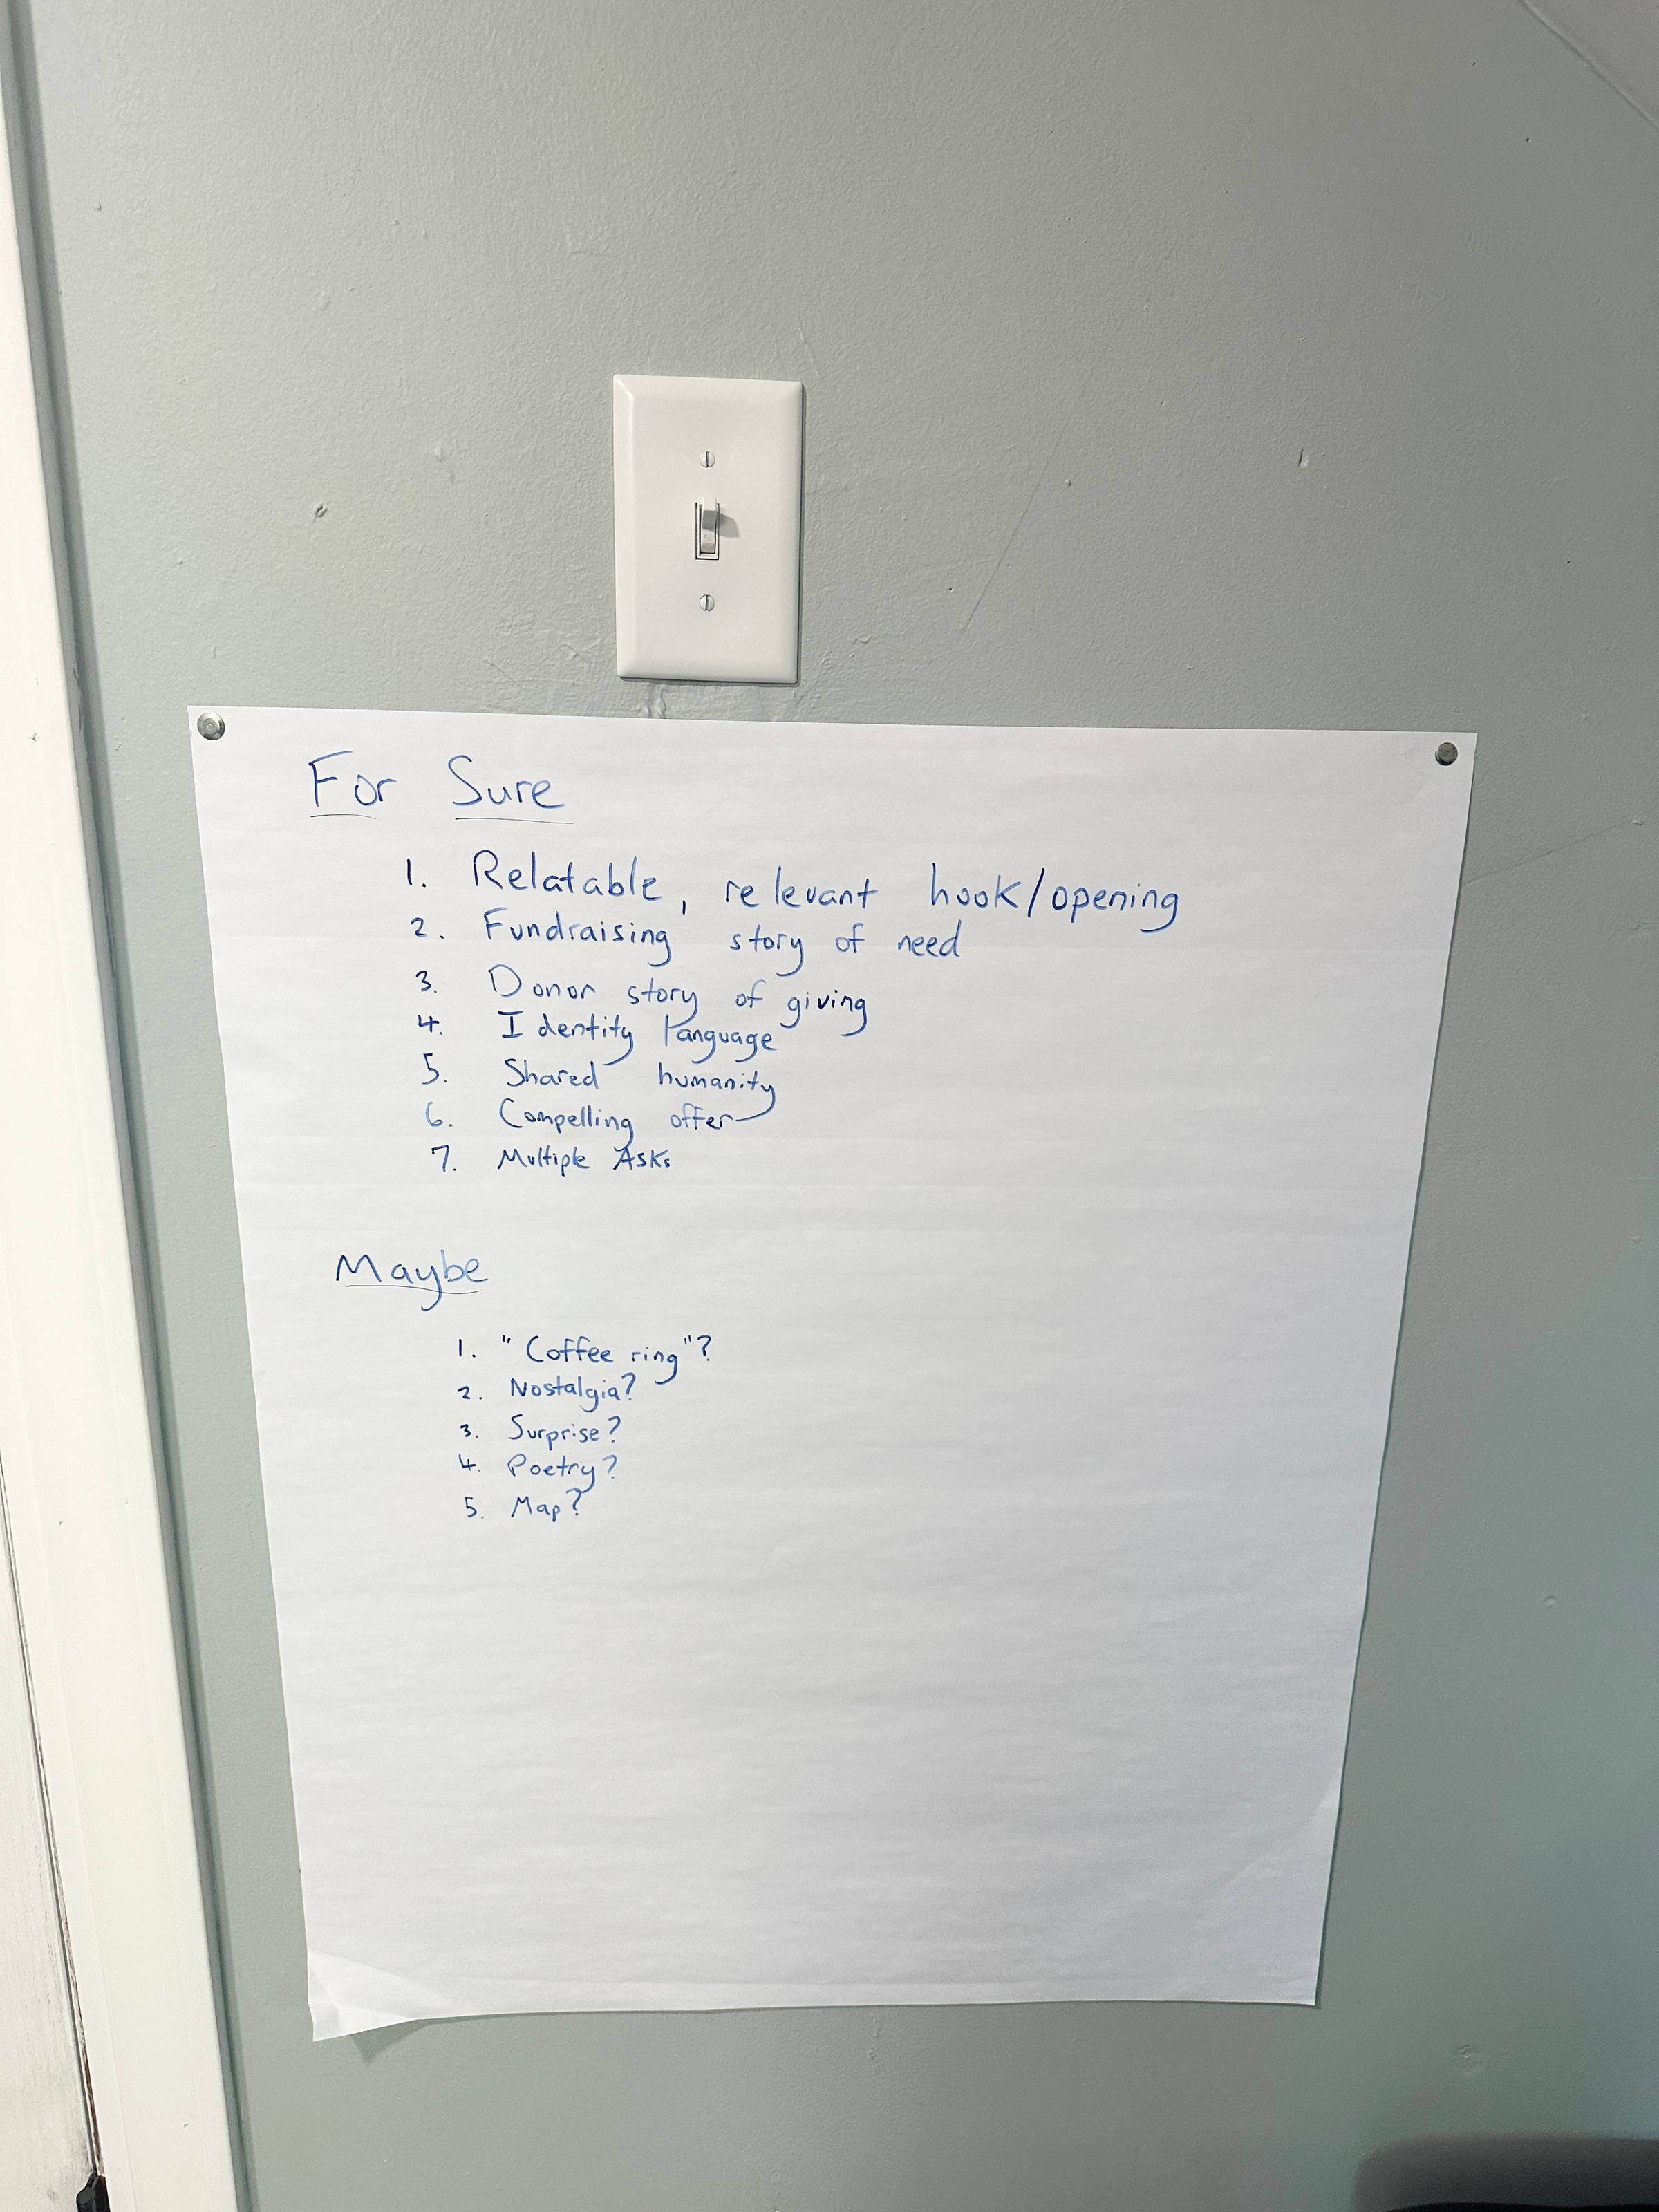 For Sure
1. Relatable, relevant hook/opening
2. Fundraising story of need
3. Donor story of giving
4. Identity language
5. Shared humanity
6. Compelling offer
7. Multiple Asks
Maybe
1. "Coffee ring"?
2. Nostalgia?
3. Surprise?
4. Poetry?
5. Map?